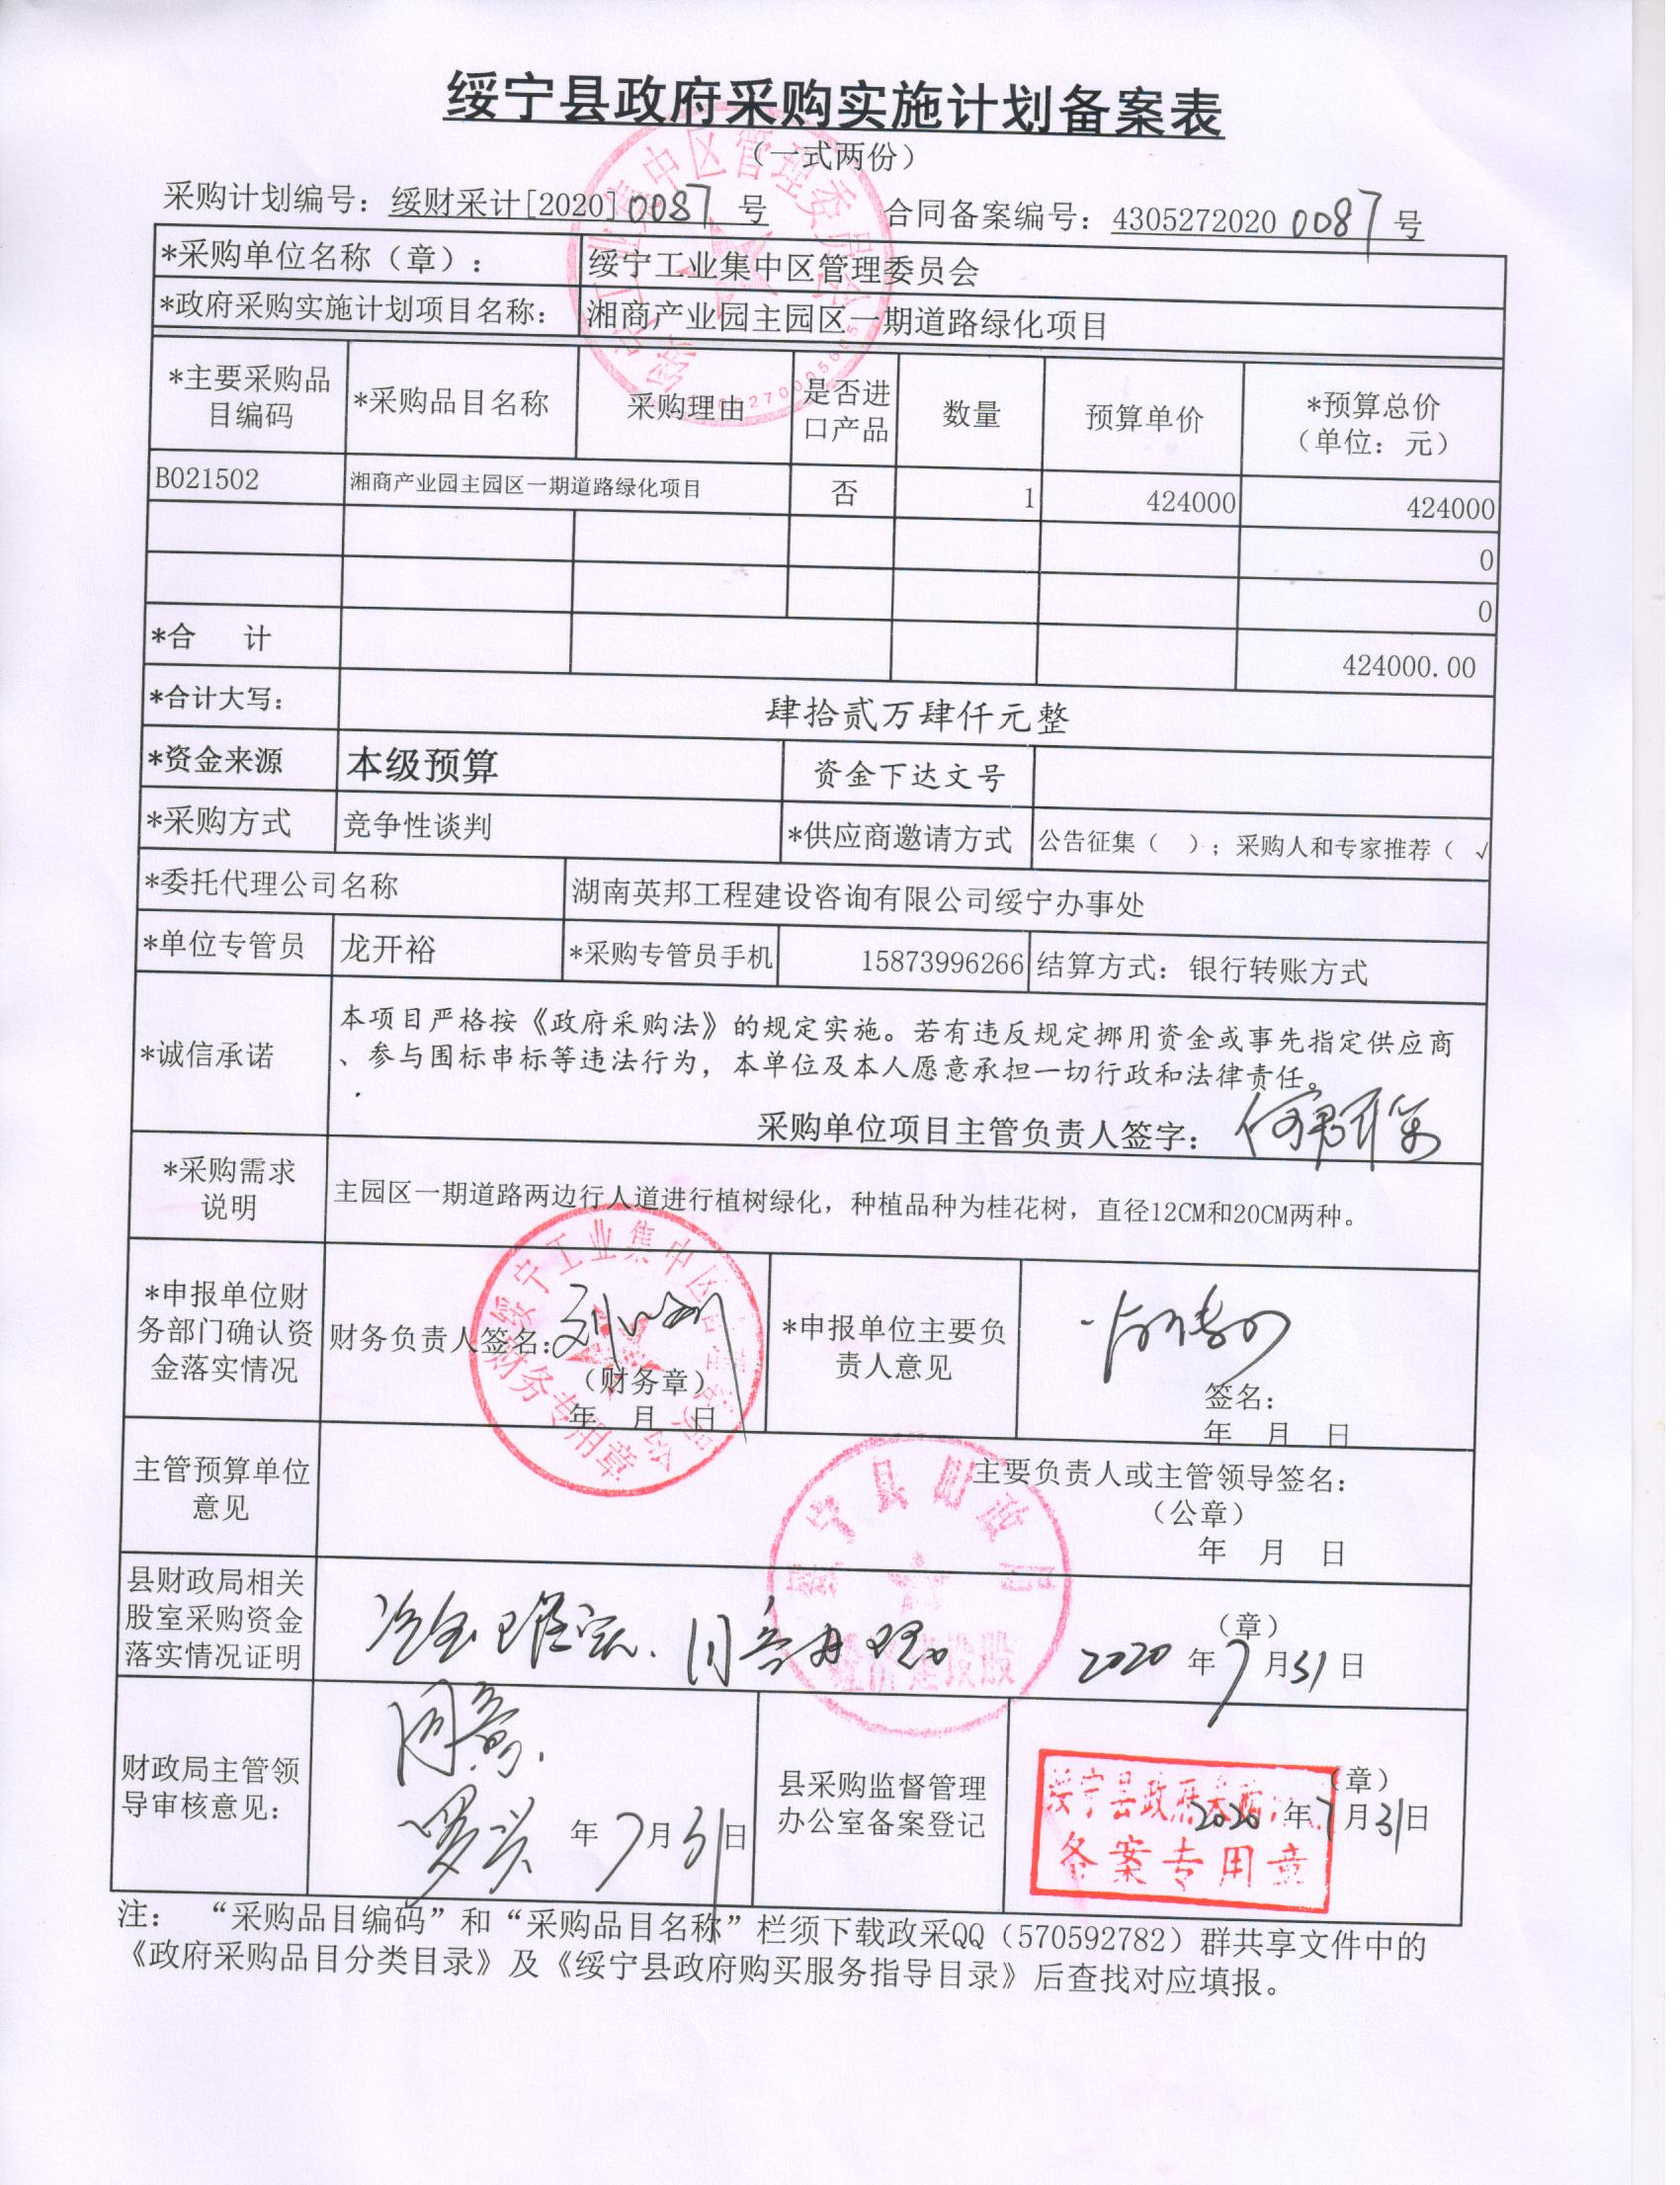 绥宁县政府采购实施计划备案表
（一式两份）
采购计划编号：绥财采计[2020]0087 号 合同备案编号：4305272020 0087 号
*采购单位名称（章）： 绥宁工业集中区管理委员会
*政府采购实施计划项目名称： 湘商产业园主园区一期道路绿化项目
*主要采购品目编码 *采购品目名称 采购理由 是否进口产品 数量 预算单价 *预算总价（单位：元）
B021502 湘商产业园主园区一期道路绿化项目 否 1 424000 424000
0
0
*合 计 424000.00
*合计大写： 肆拾贰万肆仟元整
*资金来源 本级预算 资金下达文号
*采购方式 竞争性谈判 *供应商邀请方式 公告征集（ ）；采购人和专家推荐（ √
*委托代理公司名称 湖南英邦工程建设咨询有限公司绥宁办事处
*单位专管员 龙开裕 *采购专管员手机 15873996266 结算方式：银行转账方式
*诚信承诺
本项目严格按《政府采购法》的规定实施。若有违反规定挪用资金或事先指定供应商
、参与围标串标等违法行为，本单位及本人愿意承担一切行政和法律责任。
采购单位项目主管负责人签字：
*采购需求说明 主园区一期道路两边行人道进行植树绿化，种植品种为桂花树，直径12CM和20CM两种。
*申报单位财务部门确认资金落实情况 财务负责人签名：
（财务章）
年 月 日
*申报单位主要负责人意见
签名：
年 月 日
绥宁工业集中区管理委员会
财务专用章
主管预算单位意见 主要负责人或主管领导签名：
（公章）
年 月 日
绥宁县财政局
经济建设股
县财政局相关股室采购资金落实情况证明 同意办理。
（章）
2020 年 7 月 31 日
财政局主管领导审核意见： 同意.
年 7 月 31 日
县采购监督管理办公室备案登记 （章）
2020 年 7 月 31 日
绥宁县政府采购
备案专用章
注： “采购品目编码”和“采购品目名称”栏须下载政采QQ（570592782）群共享文件中的
《政府采购品目分类目录》及《绥宁县政府购买服务指导目录》后查找对应填报。